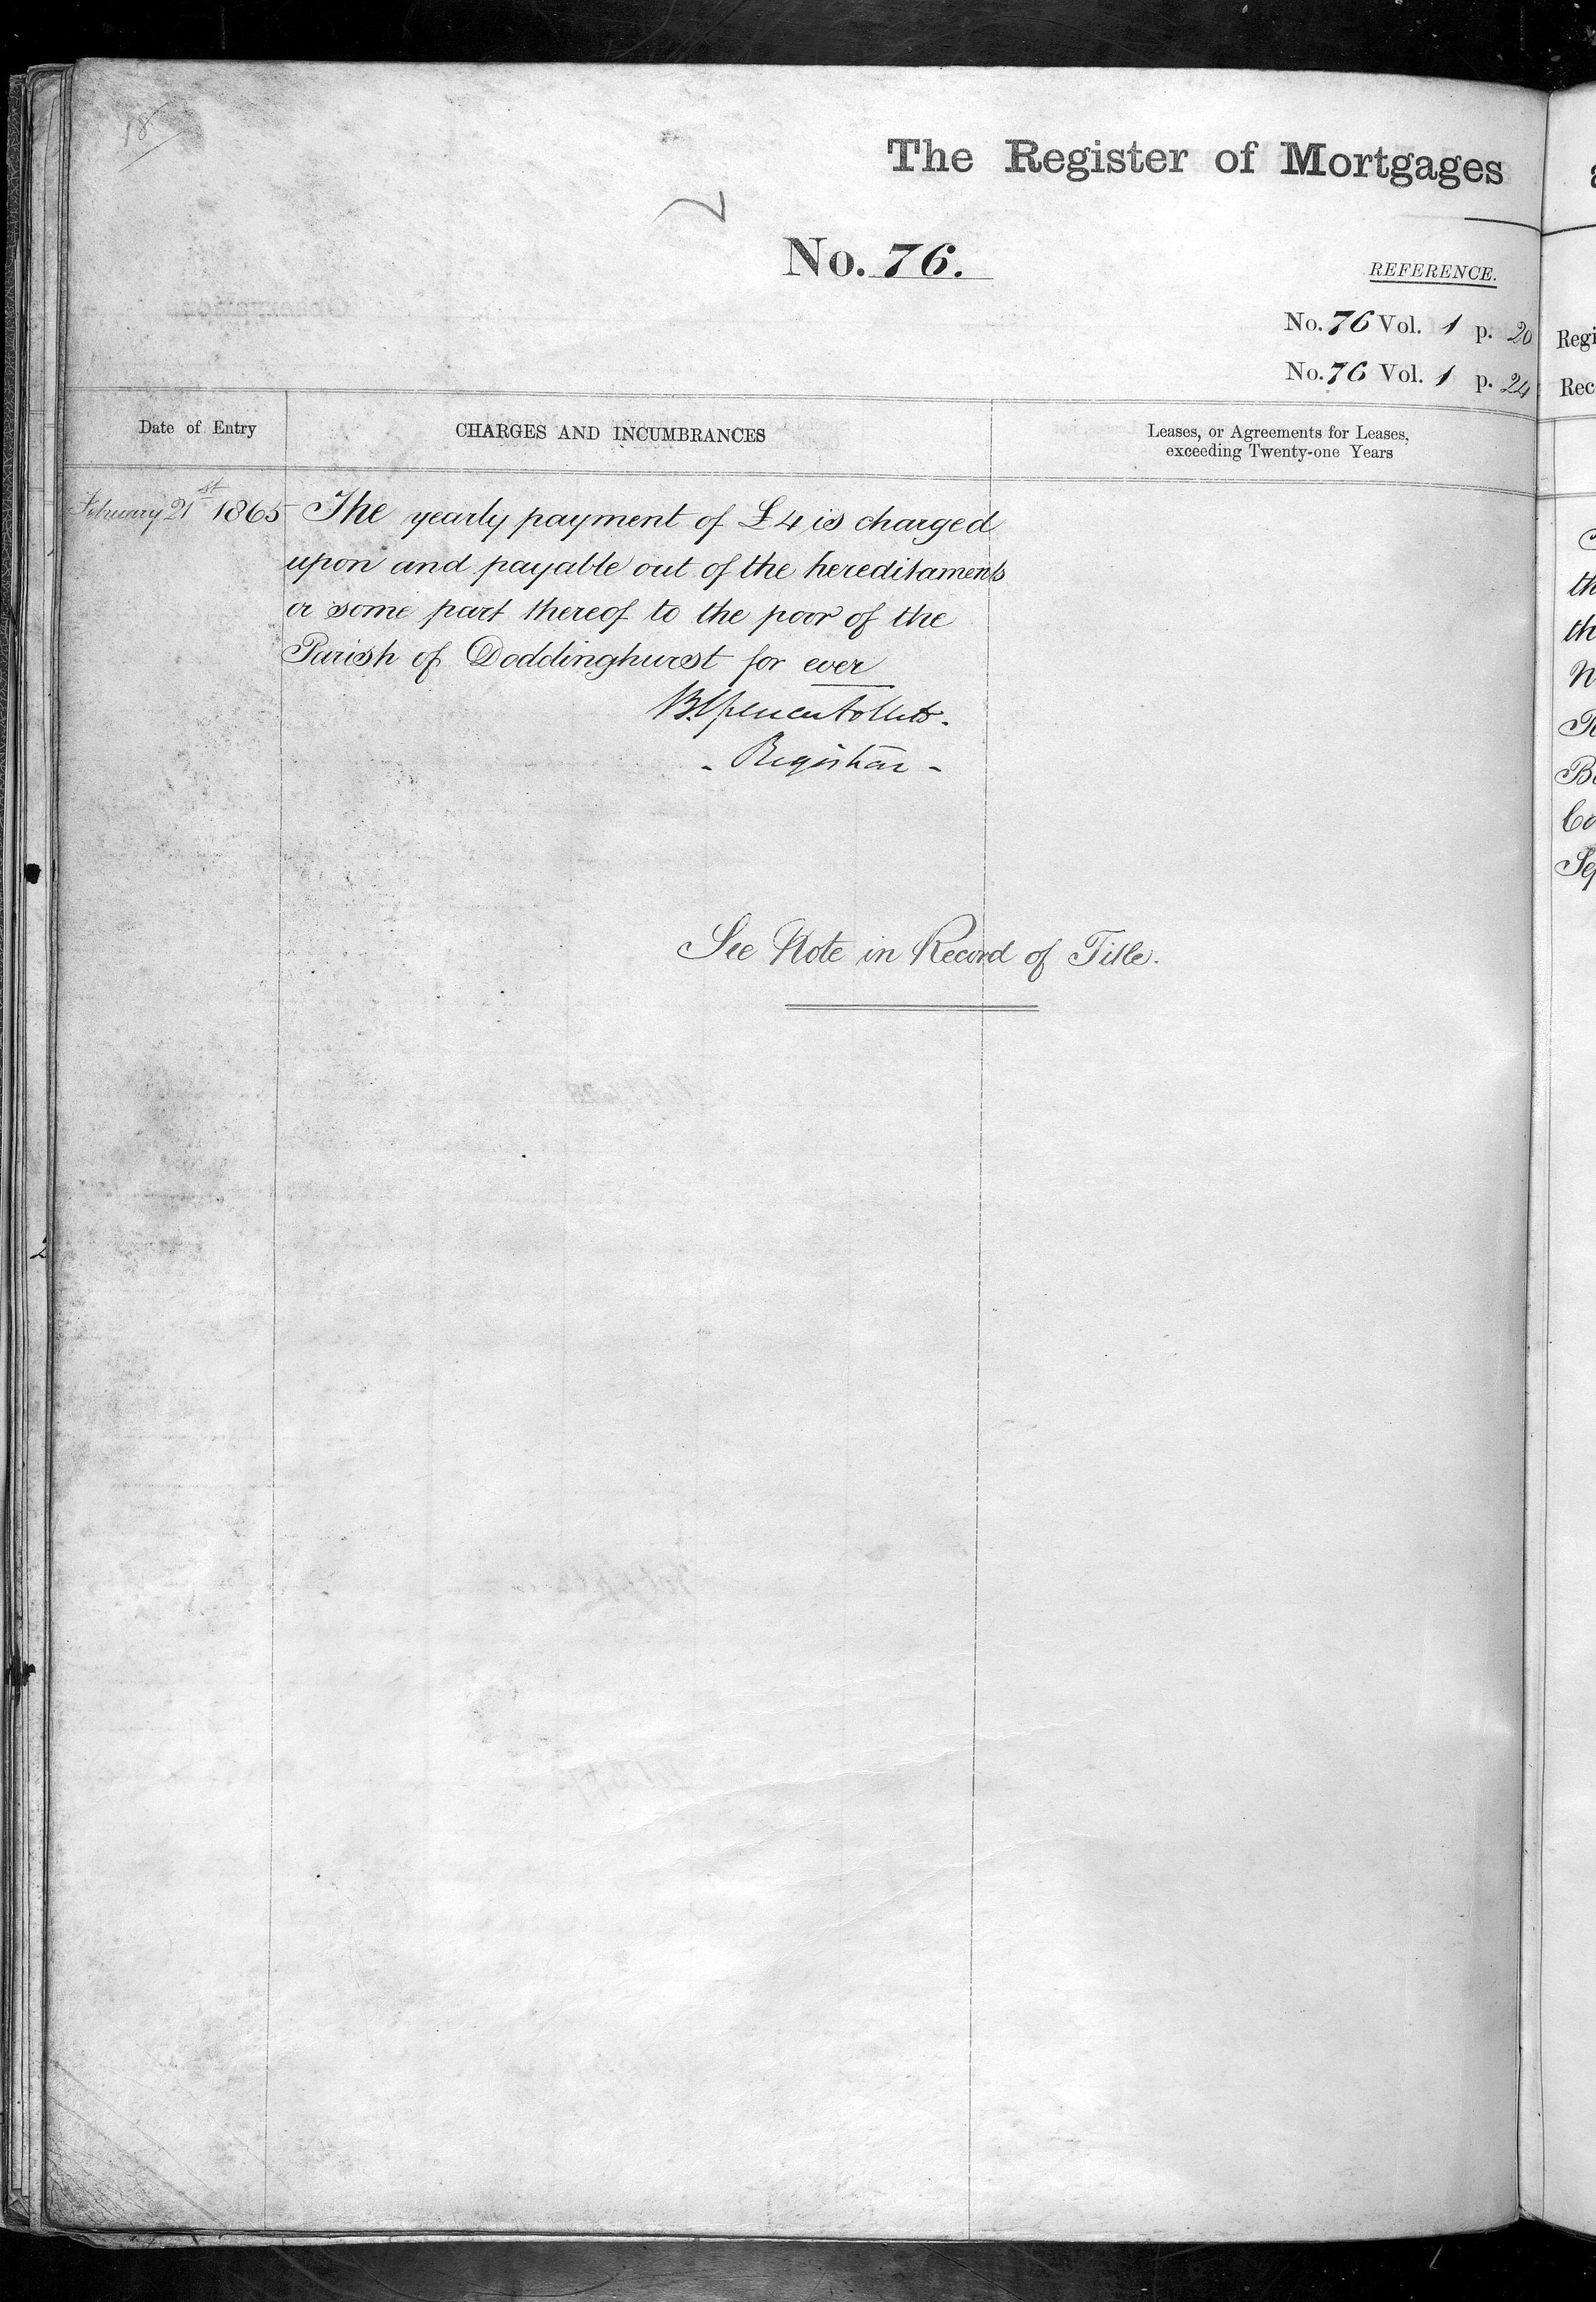 18
The Register of Mortgages
No. 76.
REFERENCE.
No. 76 Vol. 1 p. 20
No. 76 Vol. 1 p. 24
Date of Entry
CHARGES AND INCUMBRANCES
Leases, or Agreements for Leases,
exceeding Twenty-one Years
February 21st 1865
The yearly payment of £4 is charged
upon and payable out of the hereditaments
or some part thereof to the poor of the
Parish of Doddinghurst for ever
B. Spencer Follett.
- Registrar -
See Note in Record of Title.
Regi
Rec
th
th
Co
Sep